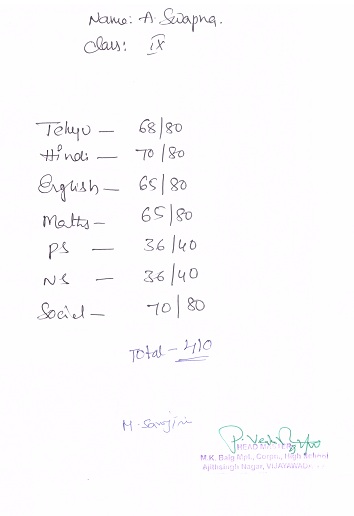 Name: A. Swapna.
Class: IX
Telugu — 68/80
Hindi — 70/80
English — 65/80
Maths — 65/80
PS — 36/40
NS — 36/40
Social — 70/80
Total — 410
M. Sarojini
HEAD MASTER
M.K. Baig Mpl., Corpn., High School
Ajithsingh Nagar, VIJAYAWADA